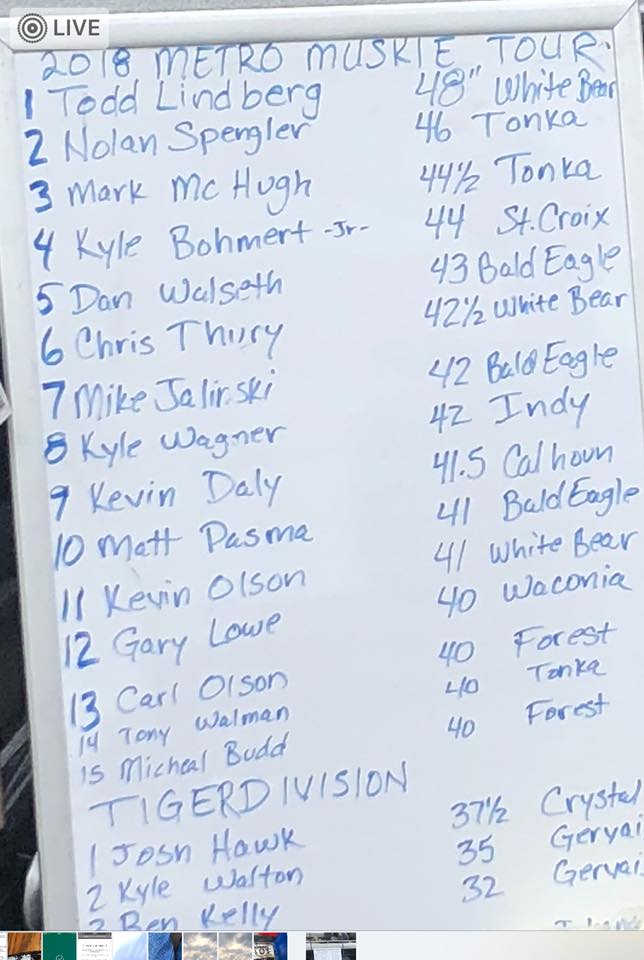 LIVE
2018 METRO MUSKIE TOUR.
1 Todd Lindberg 48" White Bear
2 Nolan Spengler 46 Tonka
3 Mark McHugh 44½ Tonka
4 Kyle Bohmert -Jr- 44 St.Croix
5 Dan Walseth 43 Bald Eagle
6 Chris Thury 42½ White Bear
7 Mike Jalinski 42 Bald Eagle
8 Kyle Wagner 42 Indy
9 Kevin Daly 41.5 Calhoun
10 Matt Pasma 41 Bald Eagle
11 Kevin Olson 41 White Bear
12 Gary Lowe 40 Waconia
13 Carl Olson 40 Forest
14 Tony Walman 40 Tonka
15 Micheal Budd 40 Forest
TIGER DIVISION
1 Josh Hawk 37½ Crystal
2 Kyle Walton 35 Gervai
3 Ben Kelly 32 Gervai